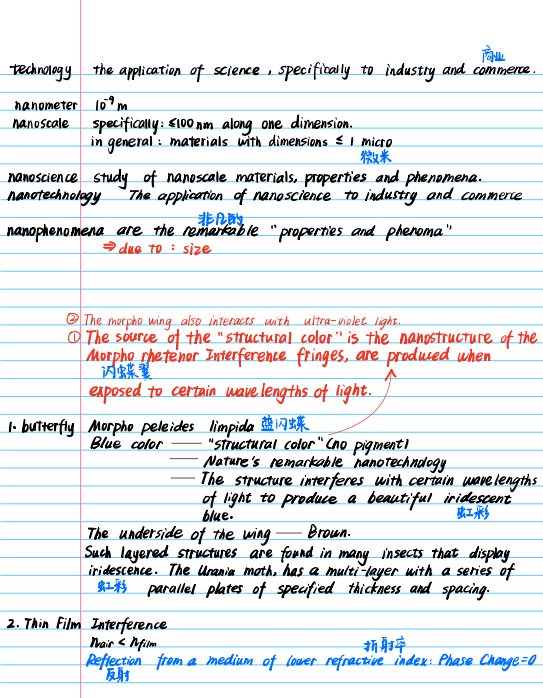 商业
technology the application of science, specifically to industry and commerce.
nanometer 10⁻⁹ m
nanoscale specifically: ≤100 nm along one dimension.
in general: materials with dimensions ≤ 1 micro
微米
nanoscience study of nanoscale materials, properties and phenomena.
nanotechnology The application of nanoscience to industry and commerce
非凡的
nanophenomena are the remarkable "properties and phenoma"
⇒ due to : size
② The morpho wing also interacts with ultra-violet light.
① The source of the "structural color" is the nanostructure of the
Morpho rhetenor Interference fringes, are produced when
闪蝶翼
exposed to certain wavelengths of light.
1. butterfly Morpho peleides limpida 蓝闪蝶
Blue color — "structural color" (no pigment)
— Nature's remarkable nanotechnology
— The structure interferes with certain wavelengths
of light to produce a beautiful iridescent
blue. 虹彩
The underside of the wing — Brown.
Such layered structures are found in many insects that display
iridescence. The Urania moth, has a multi-layer with a series of
虹彩 parallel plates of specified thickness and spacing.
2. Thin Film Interference
nair < nfilm 折射率
Reflection from a medium of lower refractive index: Phase Change=0
反射